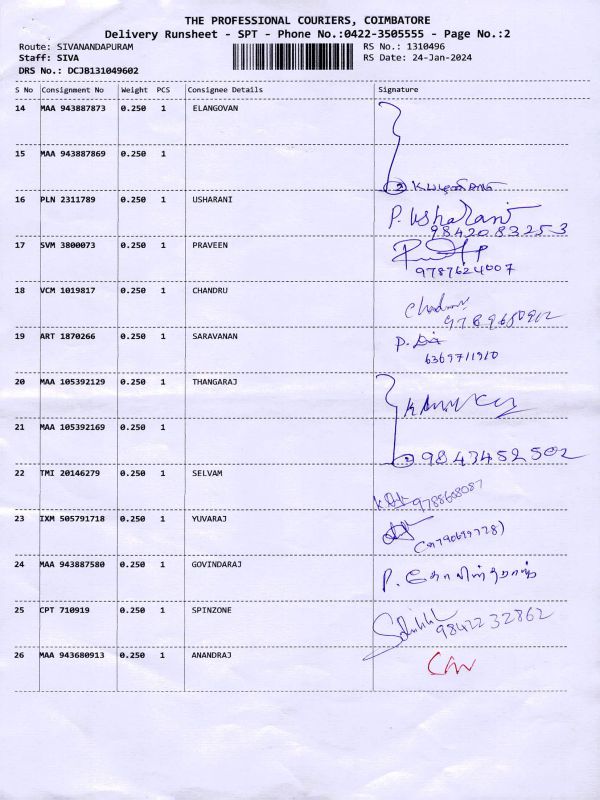 THE PROFESSIONAL COURIERS, COIMBATORE
Delivery Runsheet - SPT - Phone No.:0422-3505555 - Page No.:2
Route: SIVANANDAPURAM RS No.: 1310496
Staff: SIVA RS Date: 24-Jan-2024
DRS No.: DCJB131049602
S No Consignment No Weight PCS Consignee Details Signature
14 MAA 943887873 0.250 1 ELANGOVAN
15 MAA 943887869 0.250 1
2
16 PLN 2311789 0.250 1 USHARANI P. Usharani
98420 83253
17 SVM 3800073 0.250 1 PRAVEEN
9787624007
18 VCM 1019817 0.250 1 CHANDRU
9789650912
19 ART 1870266 0.250 1 SARAVANAN
6369711910
20 MAA 105392129 0.250 1 THANGARAJ
21 MAA 105392169 0.250 1
2 9843452502
22 TMI 20146279 0.250 1 SELVAM
9788608087
23 IXM 505791718 0.250 1 YUVARAJ
24 MAA 943887580 0.250 1 GOVINDARAJ P. கோவிந்தராஜ்
25 CPT 710919 0.250 1 SPINZONE
98422 32862
26 MAA 943680913 0.250 1 ANANDRAJ